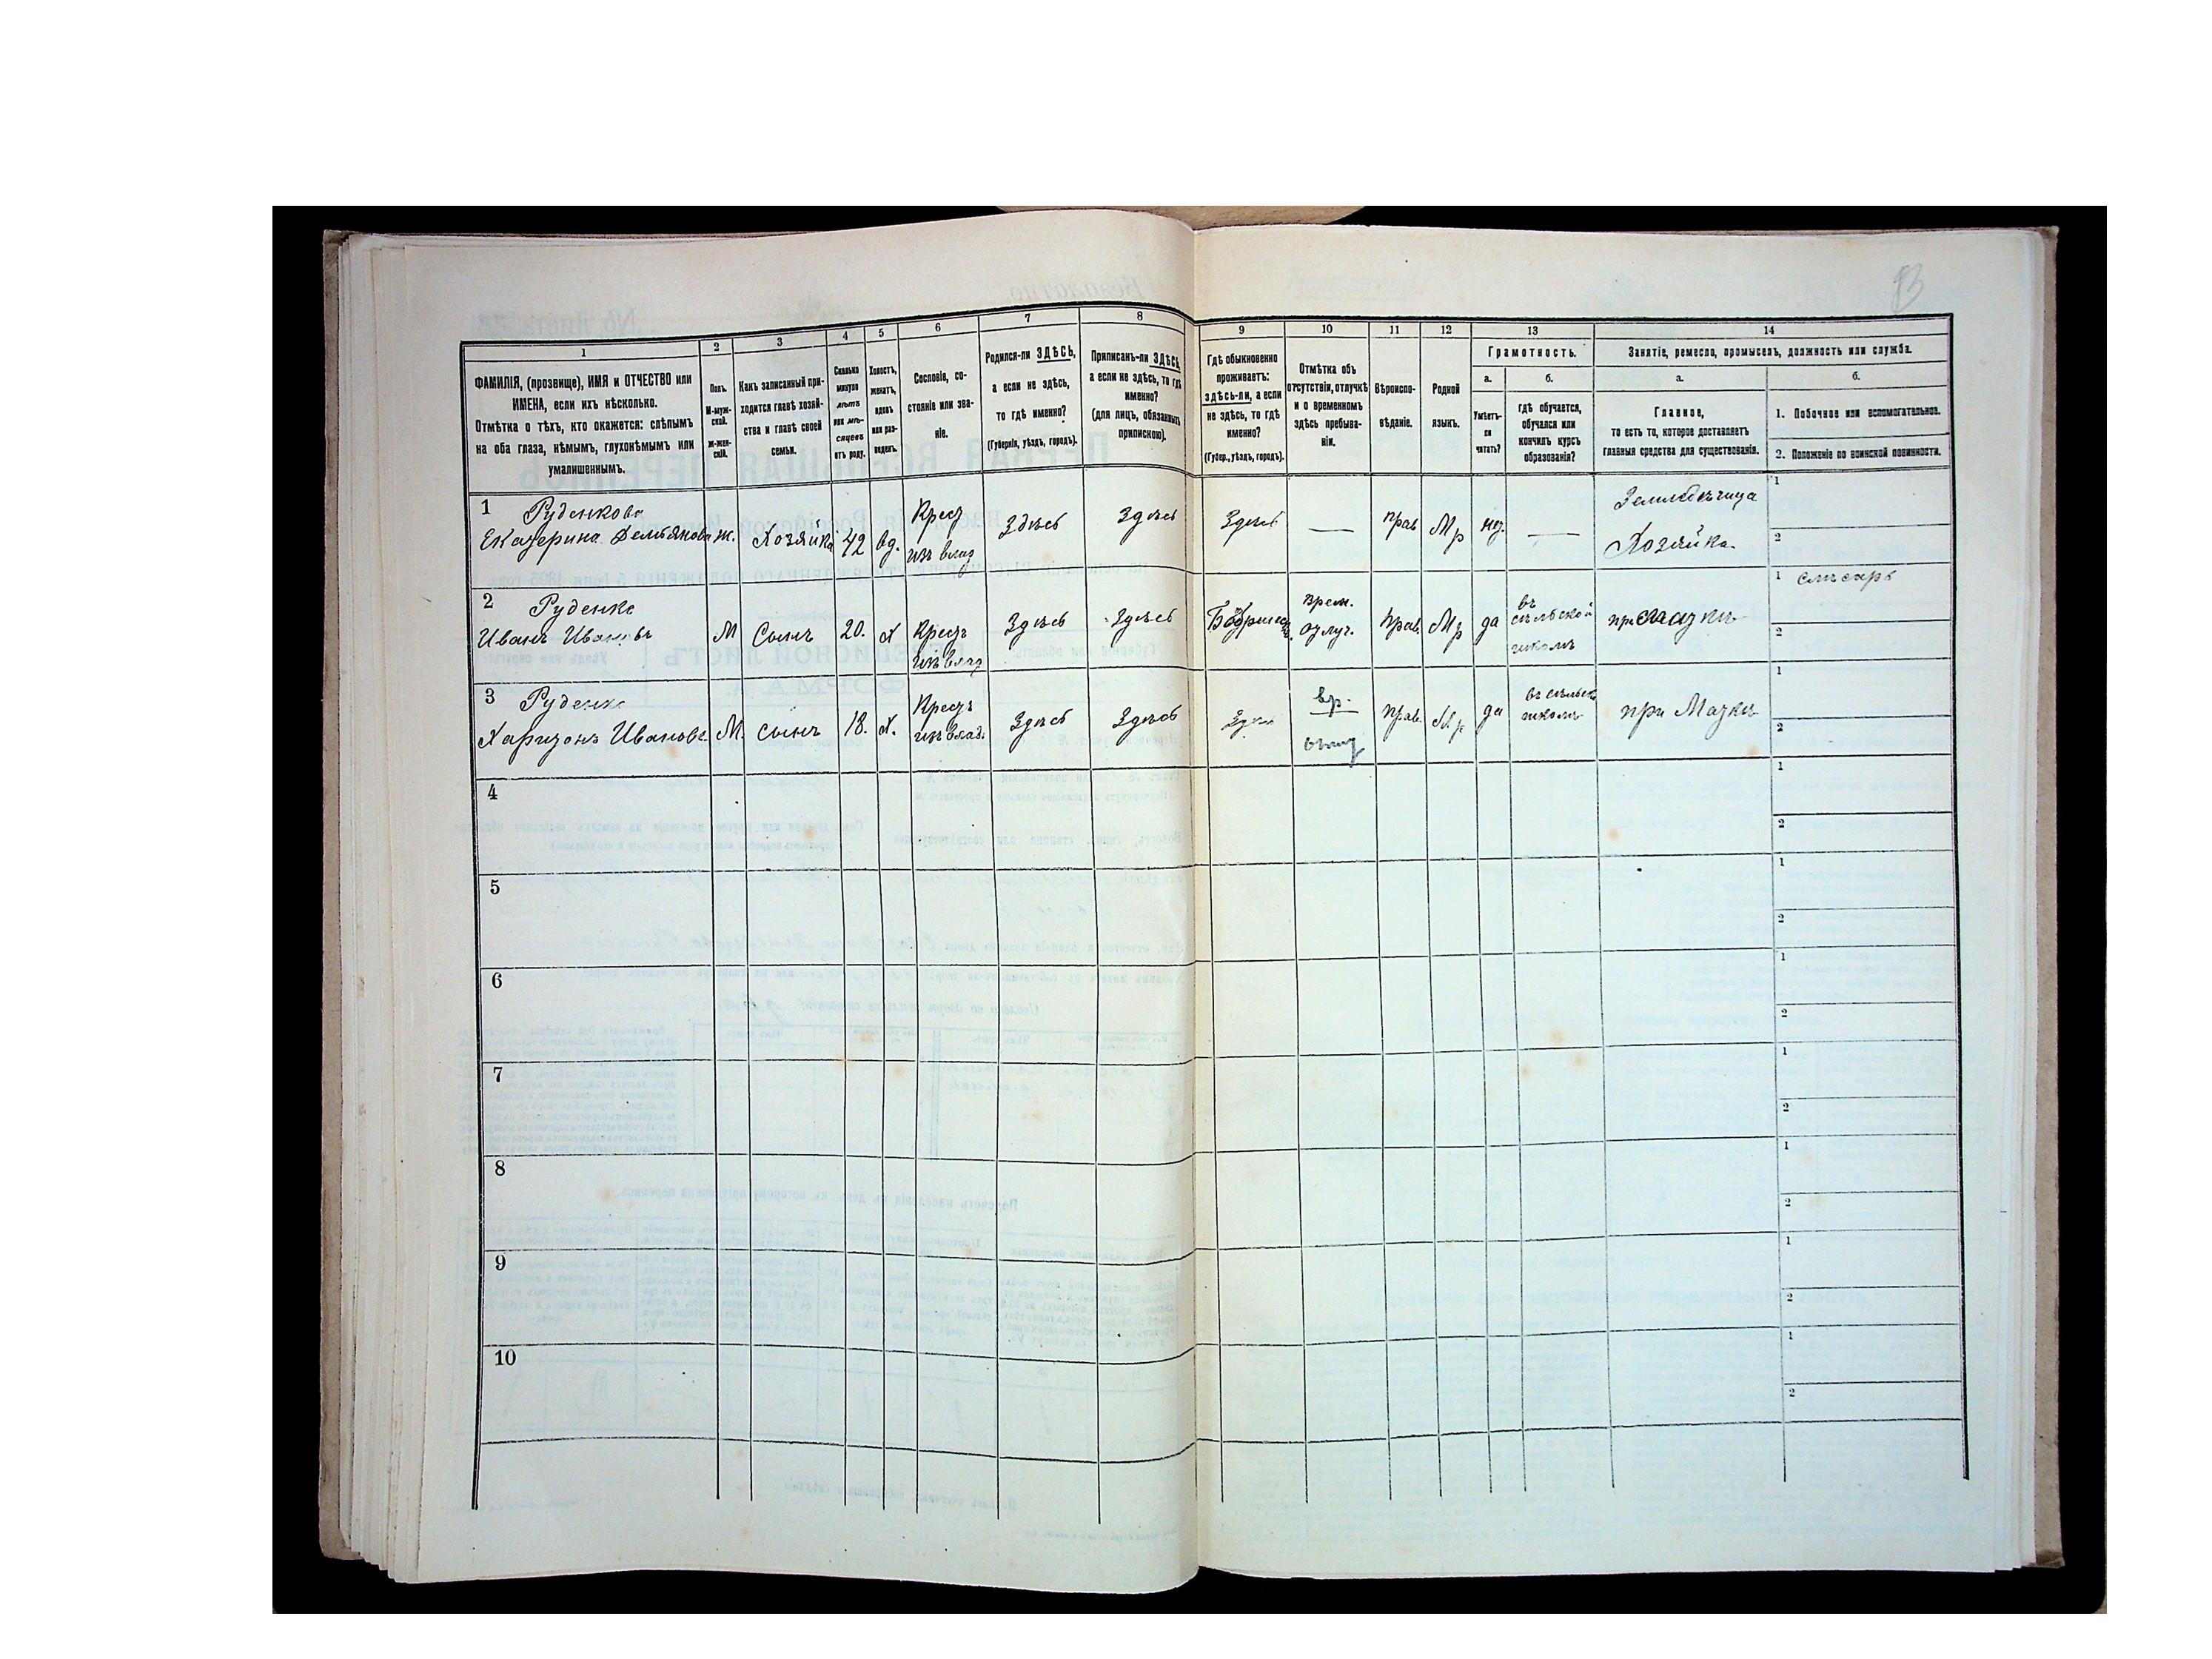 13
1
2
3
4
5
6
7
8
9
10
11
12
13
14
ФАМИЛІЯ, (прозвище), ИМЯ и ОТЧЕСТВО или
ИМЕНА, если ихъ нѣсколько.
Отмѣтка о тѣхъ, кто окажется: слѣпымъ
на оба глаза, нѣмымъ, глухонѣмымъ или
умалишеннымъ.
Полъ.
М-муж-
ской.
ж-жен-
скій.
Какъ записанный при-
ходится главѣ хозяй-
ства и главѣ своей
семьи.
Сколько
минуло
лѣтъ
или мѣ-
сяцевъ
отъ роду.
Холостъ,
женатъ,
вдовъ
или раз-
веденъ.
Сословіе, со-
стояніе или зва-
ніе.
Родился-ли ЗДѢСЬ,
а если не здѣсь,
то гдѣ именно?
(Губернія, уѣздъ, городъ).
Приписанъ-ли ЗДѢСЬ,
а если не здѣсь, то гдѣ
именно?
(для лицъ, обязанныхъ
припискою).
Гдѣ обыкновенно
проживаетъ:
здѣсь-ли, а если
не здѣсь, то гдѣ
именно?
(Губер., уѣздъ, городъ).
Отмѣтка объ
отсутствіи, отлучкѣ
и о временномъ
здѣсь пребыва-
ніи.
Вѣроиспо-
вѣданіе.
Родной
языкъ.
Грамотность.
а.
Умѣетъ-
ли
читать?
б.
гдѣ обучается,
обучался или
кончилъ курсъ
образованія?
Занятіе, ремесло, промыселъ, должность или служба.
а.
Главное,
то есть то, которое доставляетъ
главныя средства для существованія.
б.
1. Побочное или вспомогательное.
2. Положеніе по воинской повинности.
1 Руденкова
Екатерина Демьянова
ж.
Хозяйка
42
вд.
Крест
изъ влад
Здѣсь
Здѣсь
Здѣсь
—
прав
Мр
нѣт.
—
Земледѣлица
Хозяйка
1
2
2 Руденко
Иванъ Ивановъ
М
Сынъ
20.
Х
Крестъ
изъ влад
Здѣсь
Здѣсь
врем.
отлуч.
Прав.
Мр
да
въ
сельской
школѣ
1 слѣсарь
2
3 Руденко
Харитонъ Ивановъ
М.
сынъ
18.
Х.
Крестъ
изъ влад.
Здѣсь
Здѣсь
вр.
прав.
Мр
да
въ сельск
школѣ
при Маткѣ
1
2
4
1
2
5
1
2
6
1
2
7
1
2
8
1
2
9
1
2
10
1
2